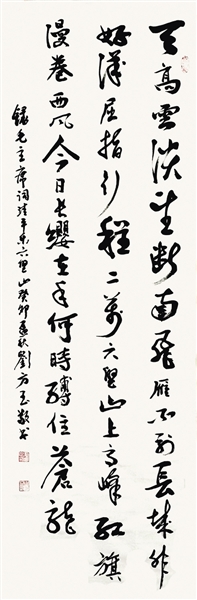 天高雲淡望断南飛雁不到長城非
好漢屈指行程二萬六盤山上高峰紅旗
漫卷西風今日長纓在手何時縛住蒼龍
錄毛主席詞清平樂六盤山癸卯秋劉方